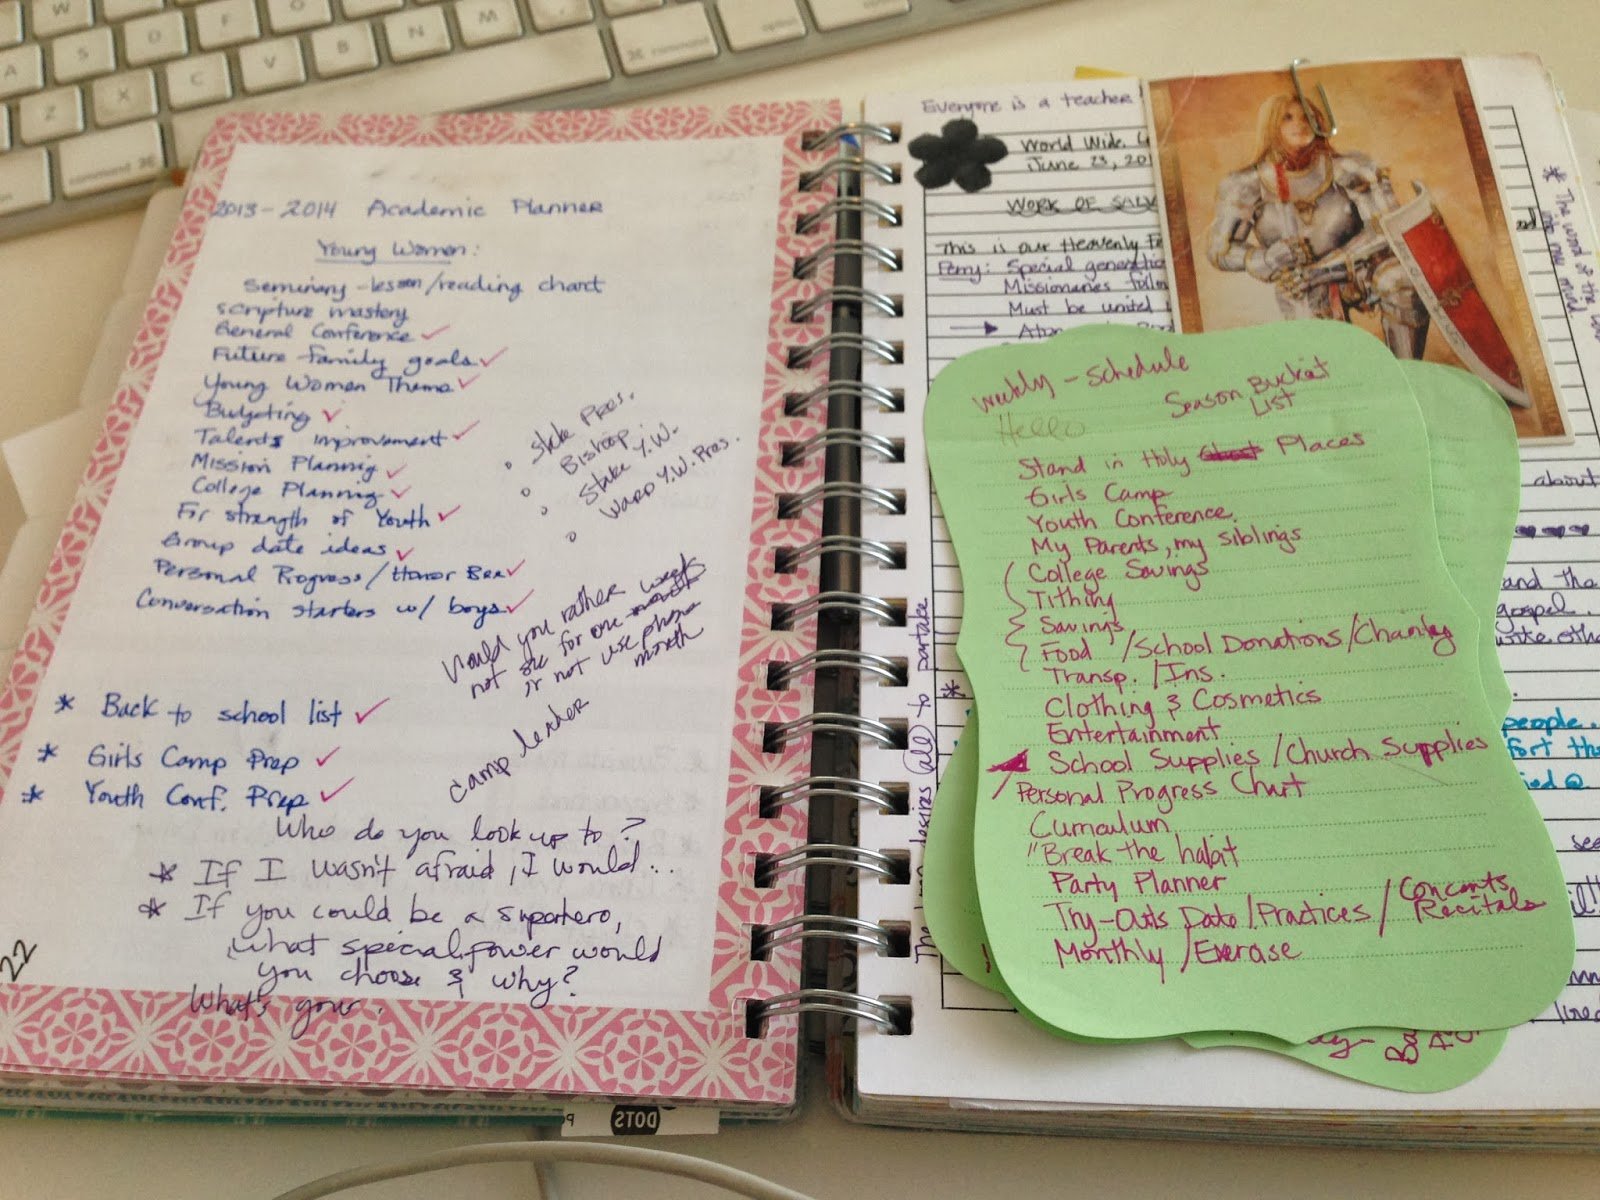 W
S
D
F
G
H
A
Z
X
C
V
B
N
M
command
command
2013-2014 Academic Planner
Young Women:
Seminary-lesson/reading chart
Scripture mastery
General Conference ✓
Future family goals ✓
Young Women Theme ✓
Budgeting ✓
Talents improvement ✓
Mission Plannig ✓
College Plannig ✓
For strength of Youth ✓
Group date ideas ✓
Personal Progress/Honor Bee ✓
Conversation starters w/ boys ✓
Stake Pres.
Bishop
Stake Y.W.
Ward Y.W. Pres.
Would you rather weeks
not for one month
or not use phone
month
camp leader
* Back to school list ✓
* Girls Camp Prep ✓
* Youth Conf. Prep ✓
Who do you look up to?
* If I wasn't afraid, I would..
* If you could be a superhero,
what special power would
you choose & why?
What's your
22
DOTS
Everyone is a teacher!
World Wide
June 23, 201
WORK OF
This is our Heavenly
Perry: Special generation
Missionaries
Must be united
* The word of the
into
about
and the
gospel.
people.
fort the
desires (all) to partake
Weekly - Schedule
Season Bucket
List
Hello
Stand in Holy Ghost Places
Girls Camp
Youth Conference
My Parents, my siblings
College Savings
Tithing
Savings
Food /School Donations/Charity
Transp. /Ins.
Clothing & Cosmetics
Entertainment
School Supplies/Church Supplies
Personal Progress Chart
Curriculum
"Break the habit
Party Planner
Try-Outs Date/Practices/Concerts
Recitals
Monthly /Exercise